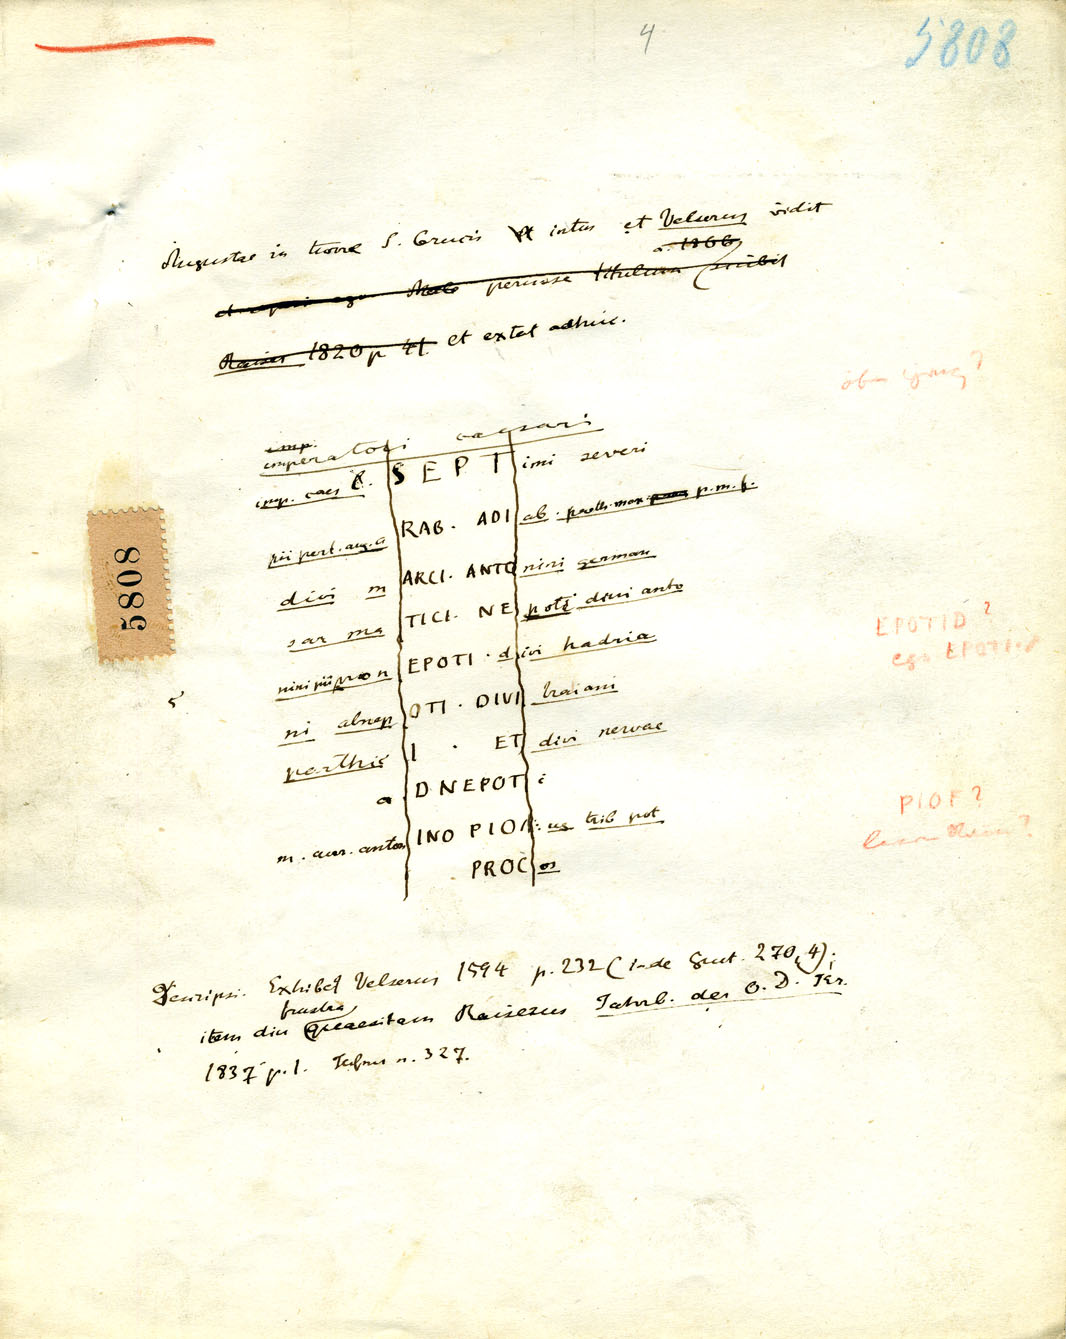 4
5808
Augustae in turre S. Crucis intus et Velserus vidit
a. 1866
et repperi ego Malo periose titulum scribit
Raiser 1820 p 41 et extat adhuc.
oben ganz?
imp.
imperatori caesari
imp. caes l. SEPT imi severi
pii pert. aug. a RAB. ADI ab. parth. max p.m.f.
divi m ARCI. ANTO nini german
sar ma TICI. NE poti divi anto
EPOTID?
nini pii pron EPOTI. divi hadria
ego EPOTI.
5
ni abnep OTI. DIVI traiani
parthic I . ET divi nervae
a D NEPOT i
PIOF?
m. aur. anton INO PIO F. ug trib pot
PROC os
5808
Descripsi. Exhibet Velserus 1594 p. 232 (inde Grut. 270, 4);
frustra
item diu quaesitam Raiserus Jahrb. des O. D. Kr.
1837 p. 1. Hefner n. 327.